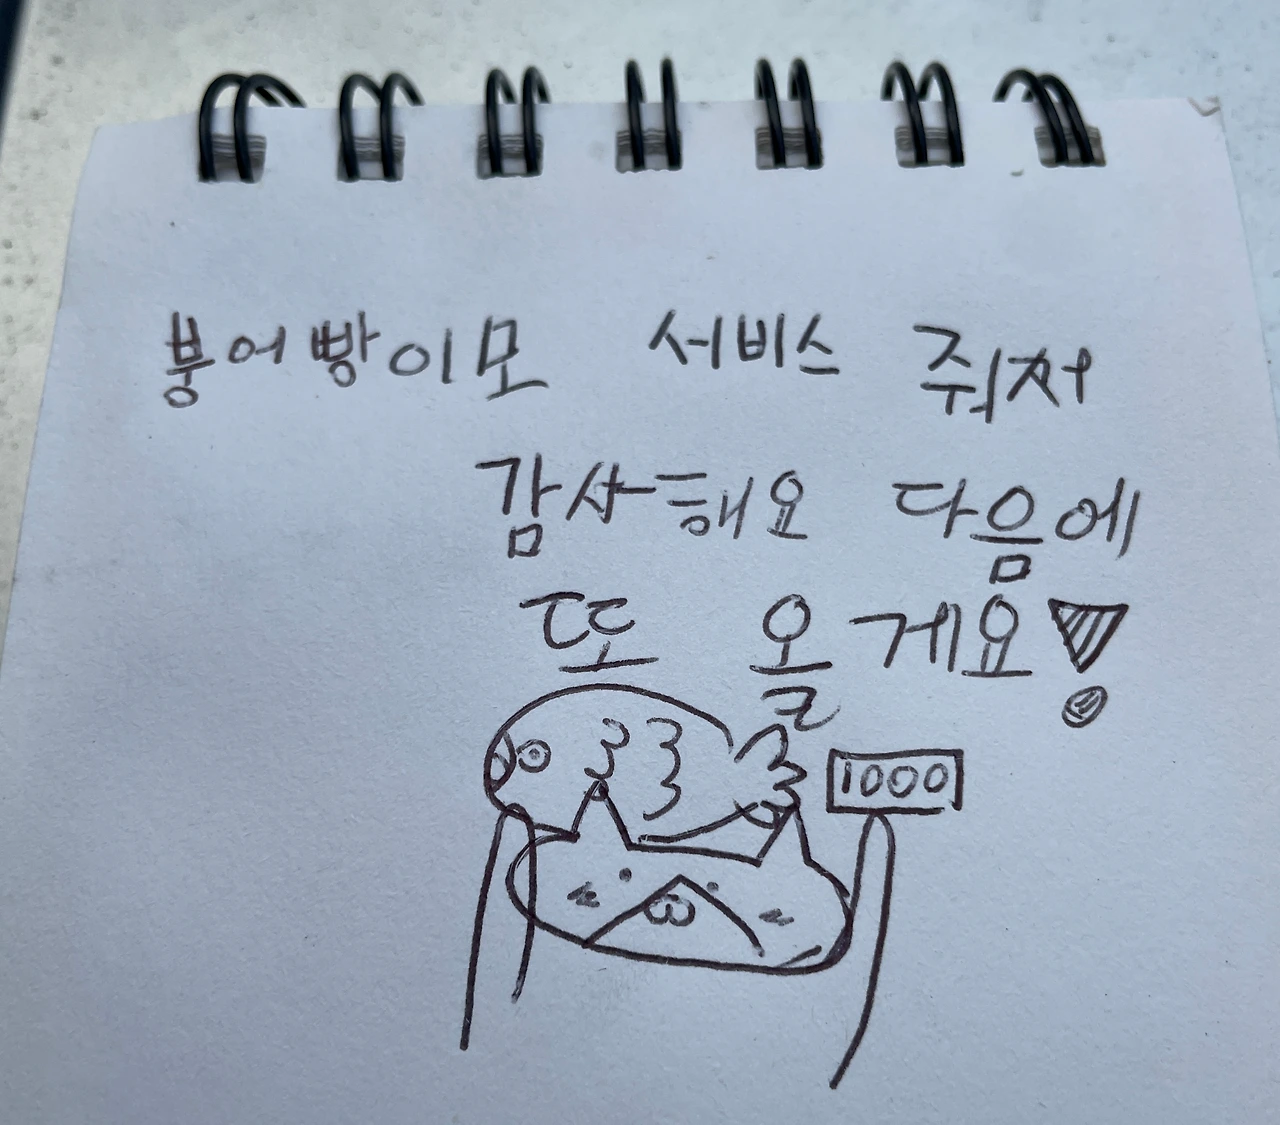 붕어빵이모 서비스 줘처
감사해요 다음에
또 올게요!
1000